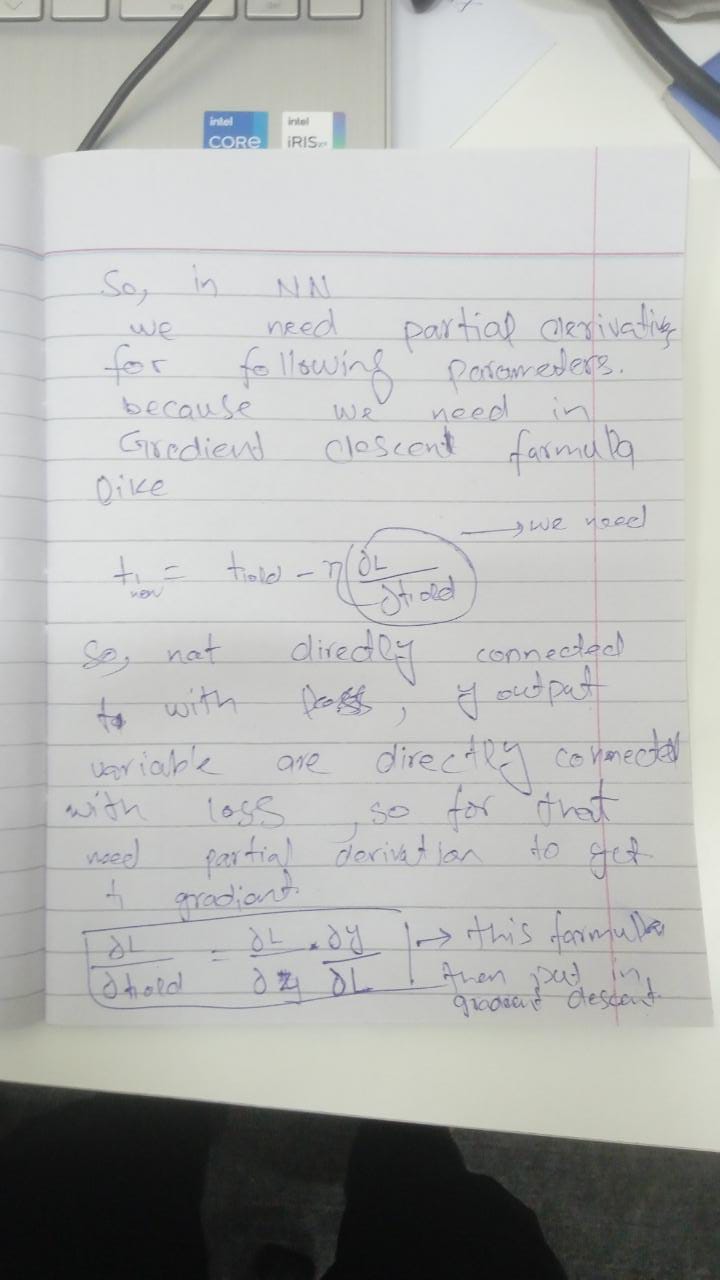 intel
CORE
intel
iRIS xe
So, in NN
we need partial derivatives
for following parameters.
because we need in
Gredient descent farmula
like
→ we need
t₁new = t₁old - η(∂L/∂t₁old)
So, not directly connected
with loss, y output
variable are directly connected
with loss, so for that
need partial derivation to get
t gradiant.
∂L/∂t₁old = ∂L/∂y . ∂y/∂L → this formula
then put in
gradient descent.